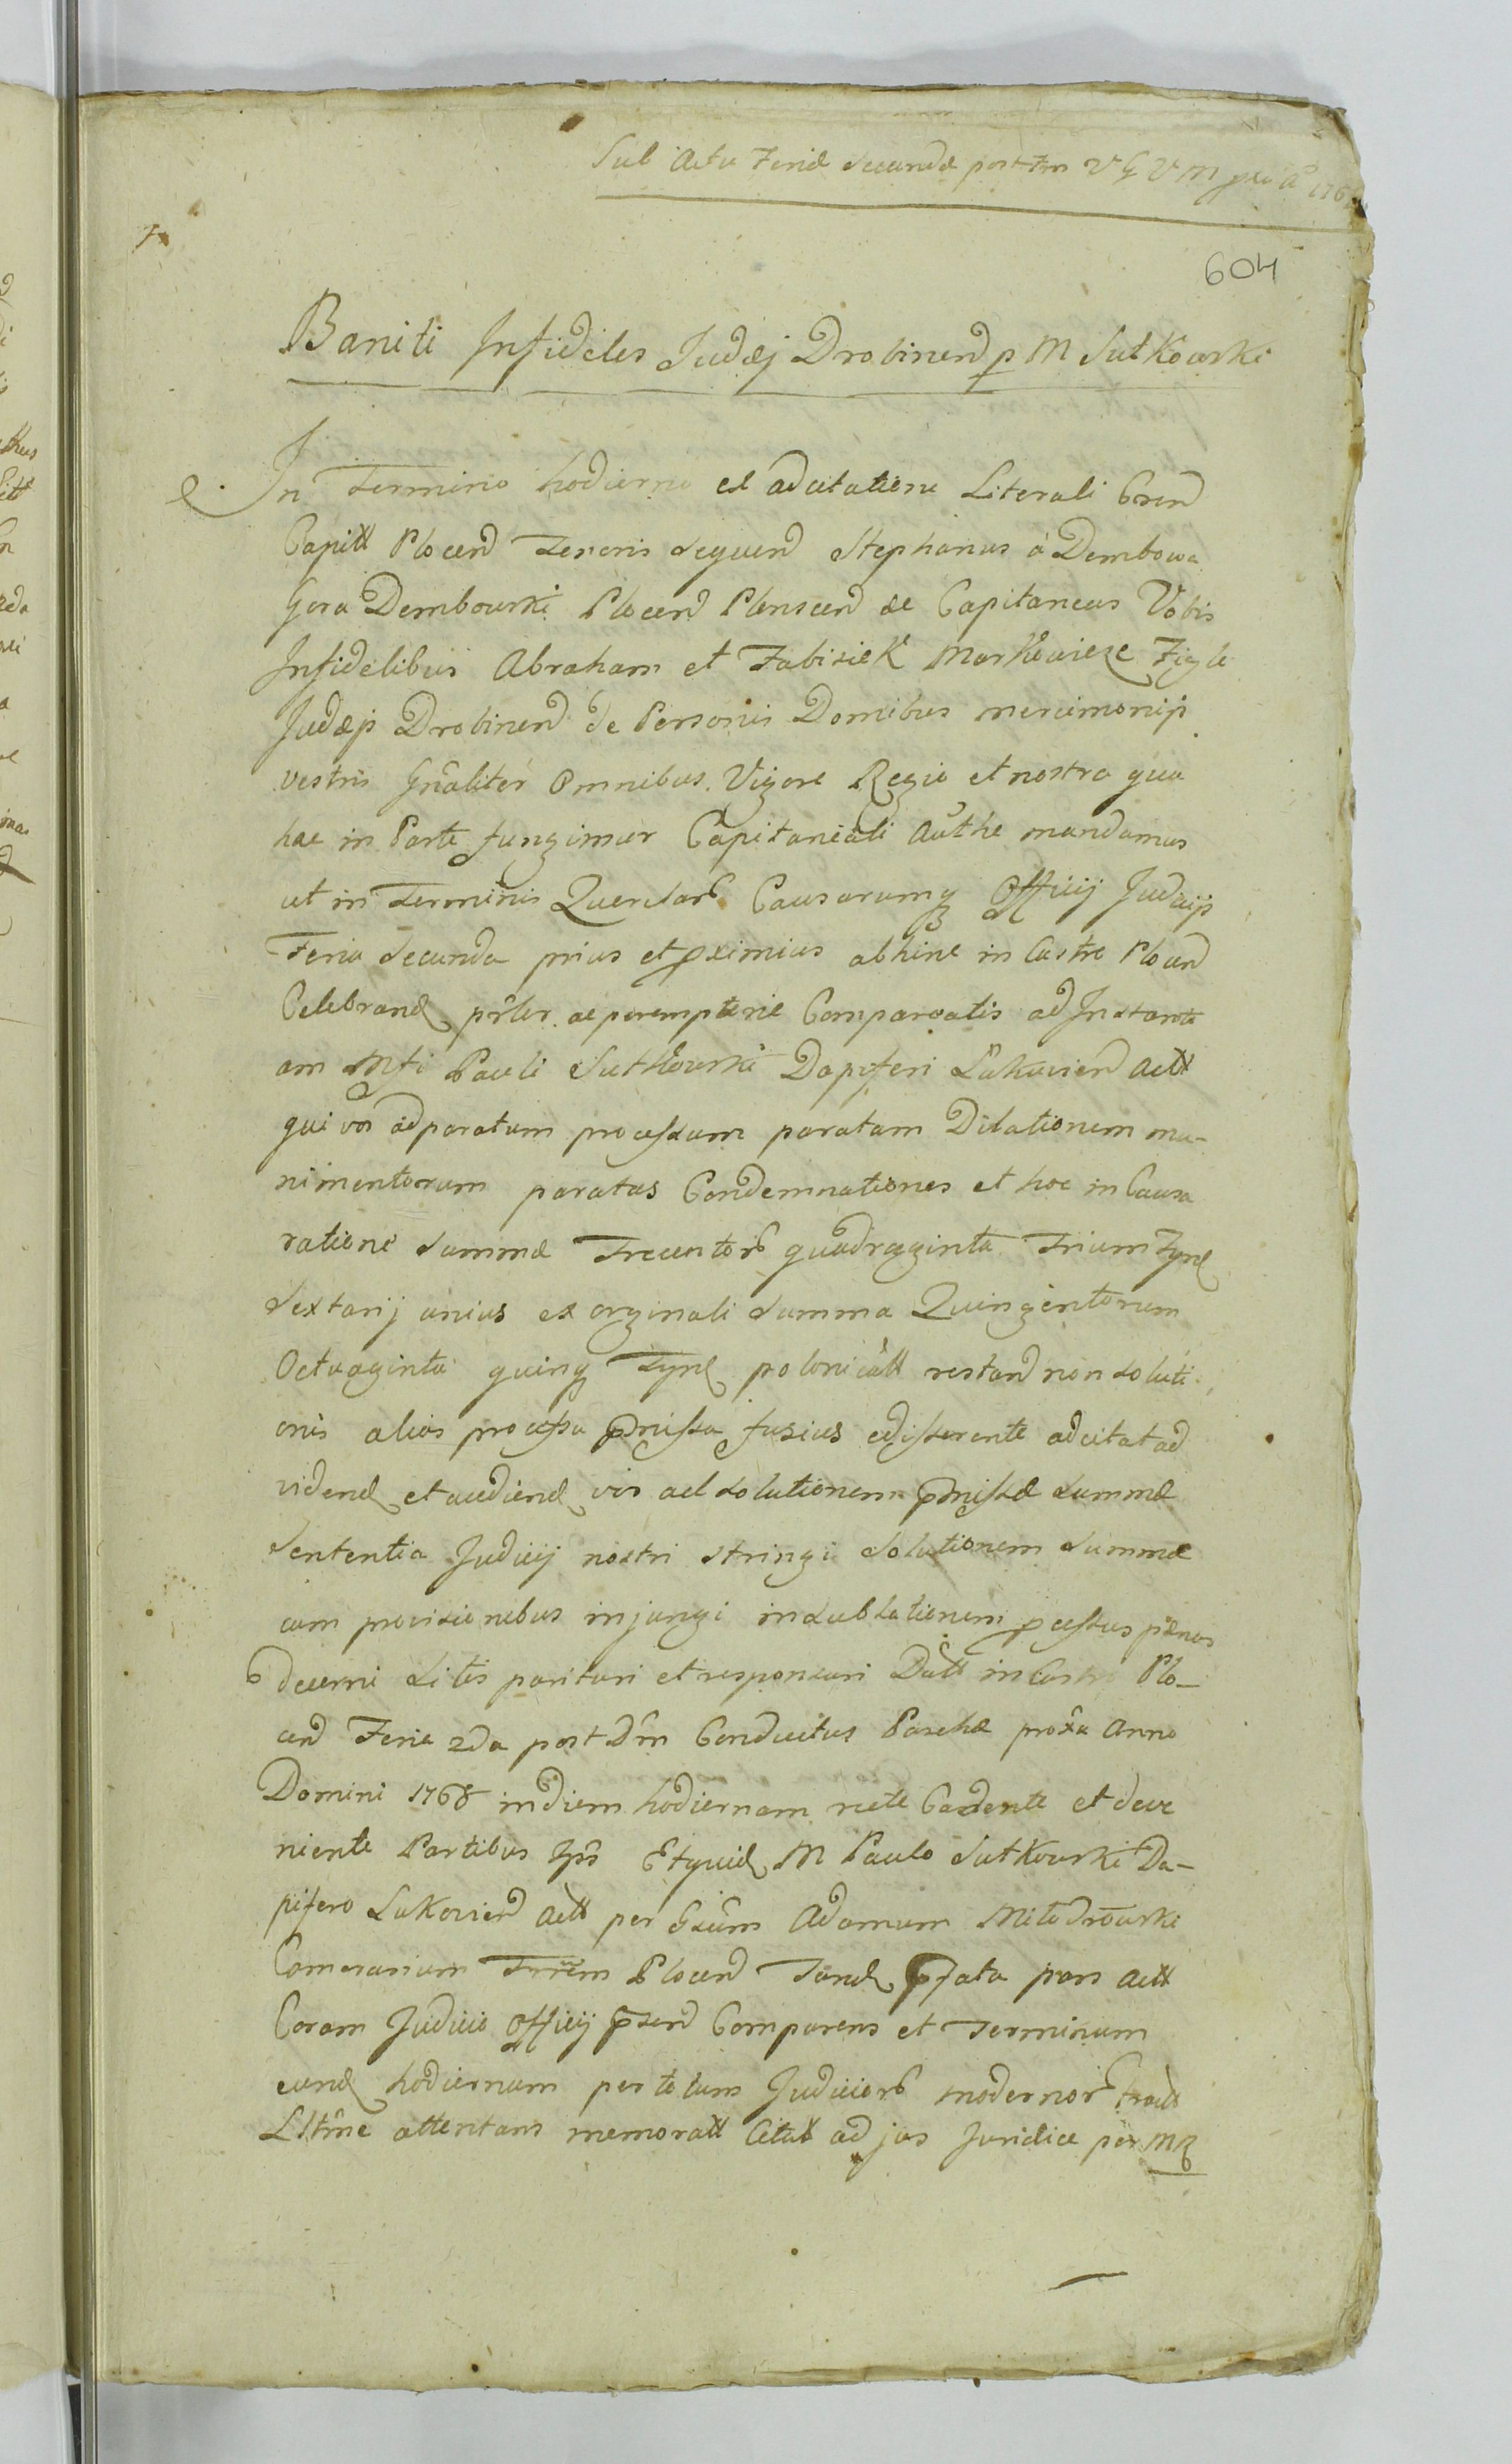 Sub Actu Feriæ Secundæ post Fm V G V M pxi Aō 176
604
Baniti Infideles Judæj Drobinen p M Sutkowski
In Termino hodierno ex adcitatione Literali Cren
Capitt Plocen Tenoris sequen Stephanus á Dembowa
Gora Dembowski Plocen Plonscen &c Capitaneus Vobis
Infidelibus Abraham et Fabisiek Markowicze Figle
Judæjs Drobinen de Personis Domibus mercimonijs
vestris Gnâliter omnibus. Vigore Regia et nostra qua
hac in Parte fungimur Capitaneáli Authe mandamus
ut in Terminis Querelarb Causarumq Officij Judicijs
Feria Secunda prius et pximius abhinc in Castro Plocen
Celebrand pñlr. ac peremptorie Compareatis ad Instanti
am Mfi Pauli Sutkowski Dapiferi Lukovien Actt
qui vos ad paratum processum paratam Dilationem mu-
nimentorum paratas Condemnationes et hoc in Causa
ratione Summæ Trecentorb quadraginta Trium Tynf
Sextarij unius ex orginali Summa Quingentorum
Octuaginta quinq Tynf polonicált restan non soluti
onis alias processu pmissa fusius edisserente adcitat ad
videnđ et audienđ vos ad solutionem pmissæ Summæ
Sententia Judicij nostri stringi solutionem Summæ
cum provisionibus injungi in sublationem pcessus pænas
decerni Litis parituri et responsuri Datt in Castro Plo-
cen Feria 2da post Dm̂ Conductus Paschæ proxa Anno
Domini 1768 in diem hodiernam recte Cadente et deve
niente Partibus Ipîs Etquid M Paulo Sutkowski Da-
pifero Lukovien Actt per Gsûm Adamum Miłodrowski
Comerarium Trrêm Plocen Tand pfata pars Actt
Coram Judicio Officij psen Comparens et Terminum
eund hodiernum per totum Judiciorb modernorb tractt
Lltîme attentans memoratt Citatt ad jus Juridice per MR